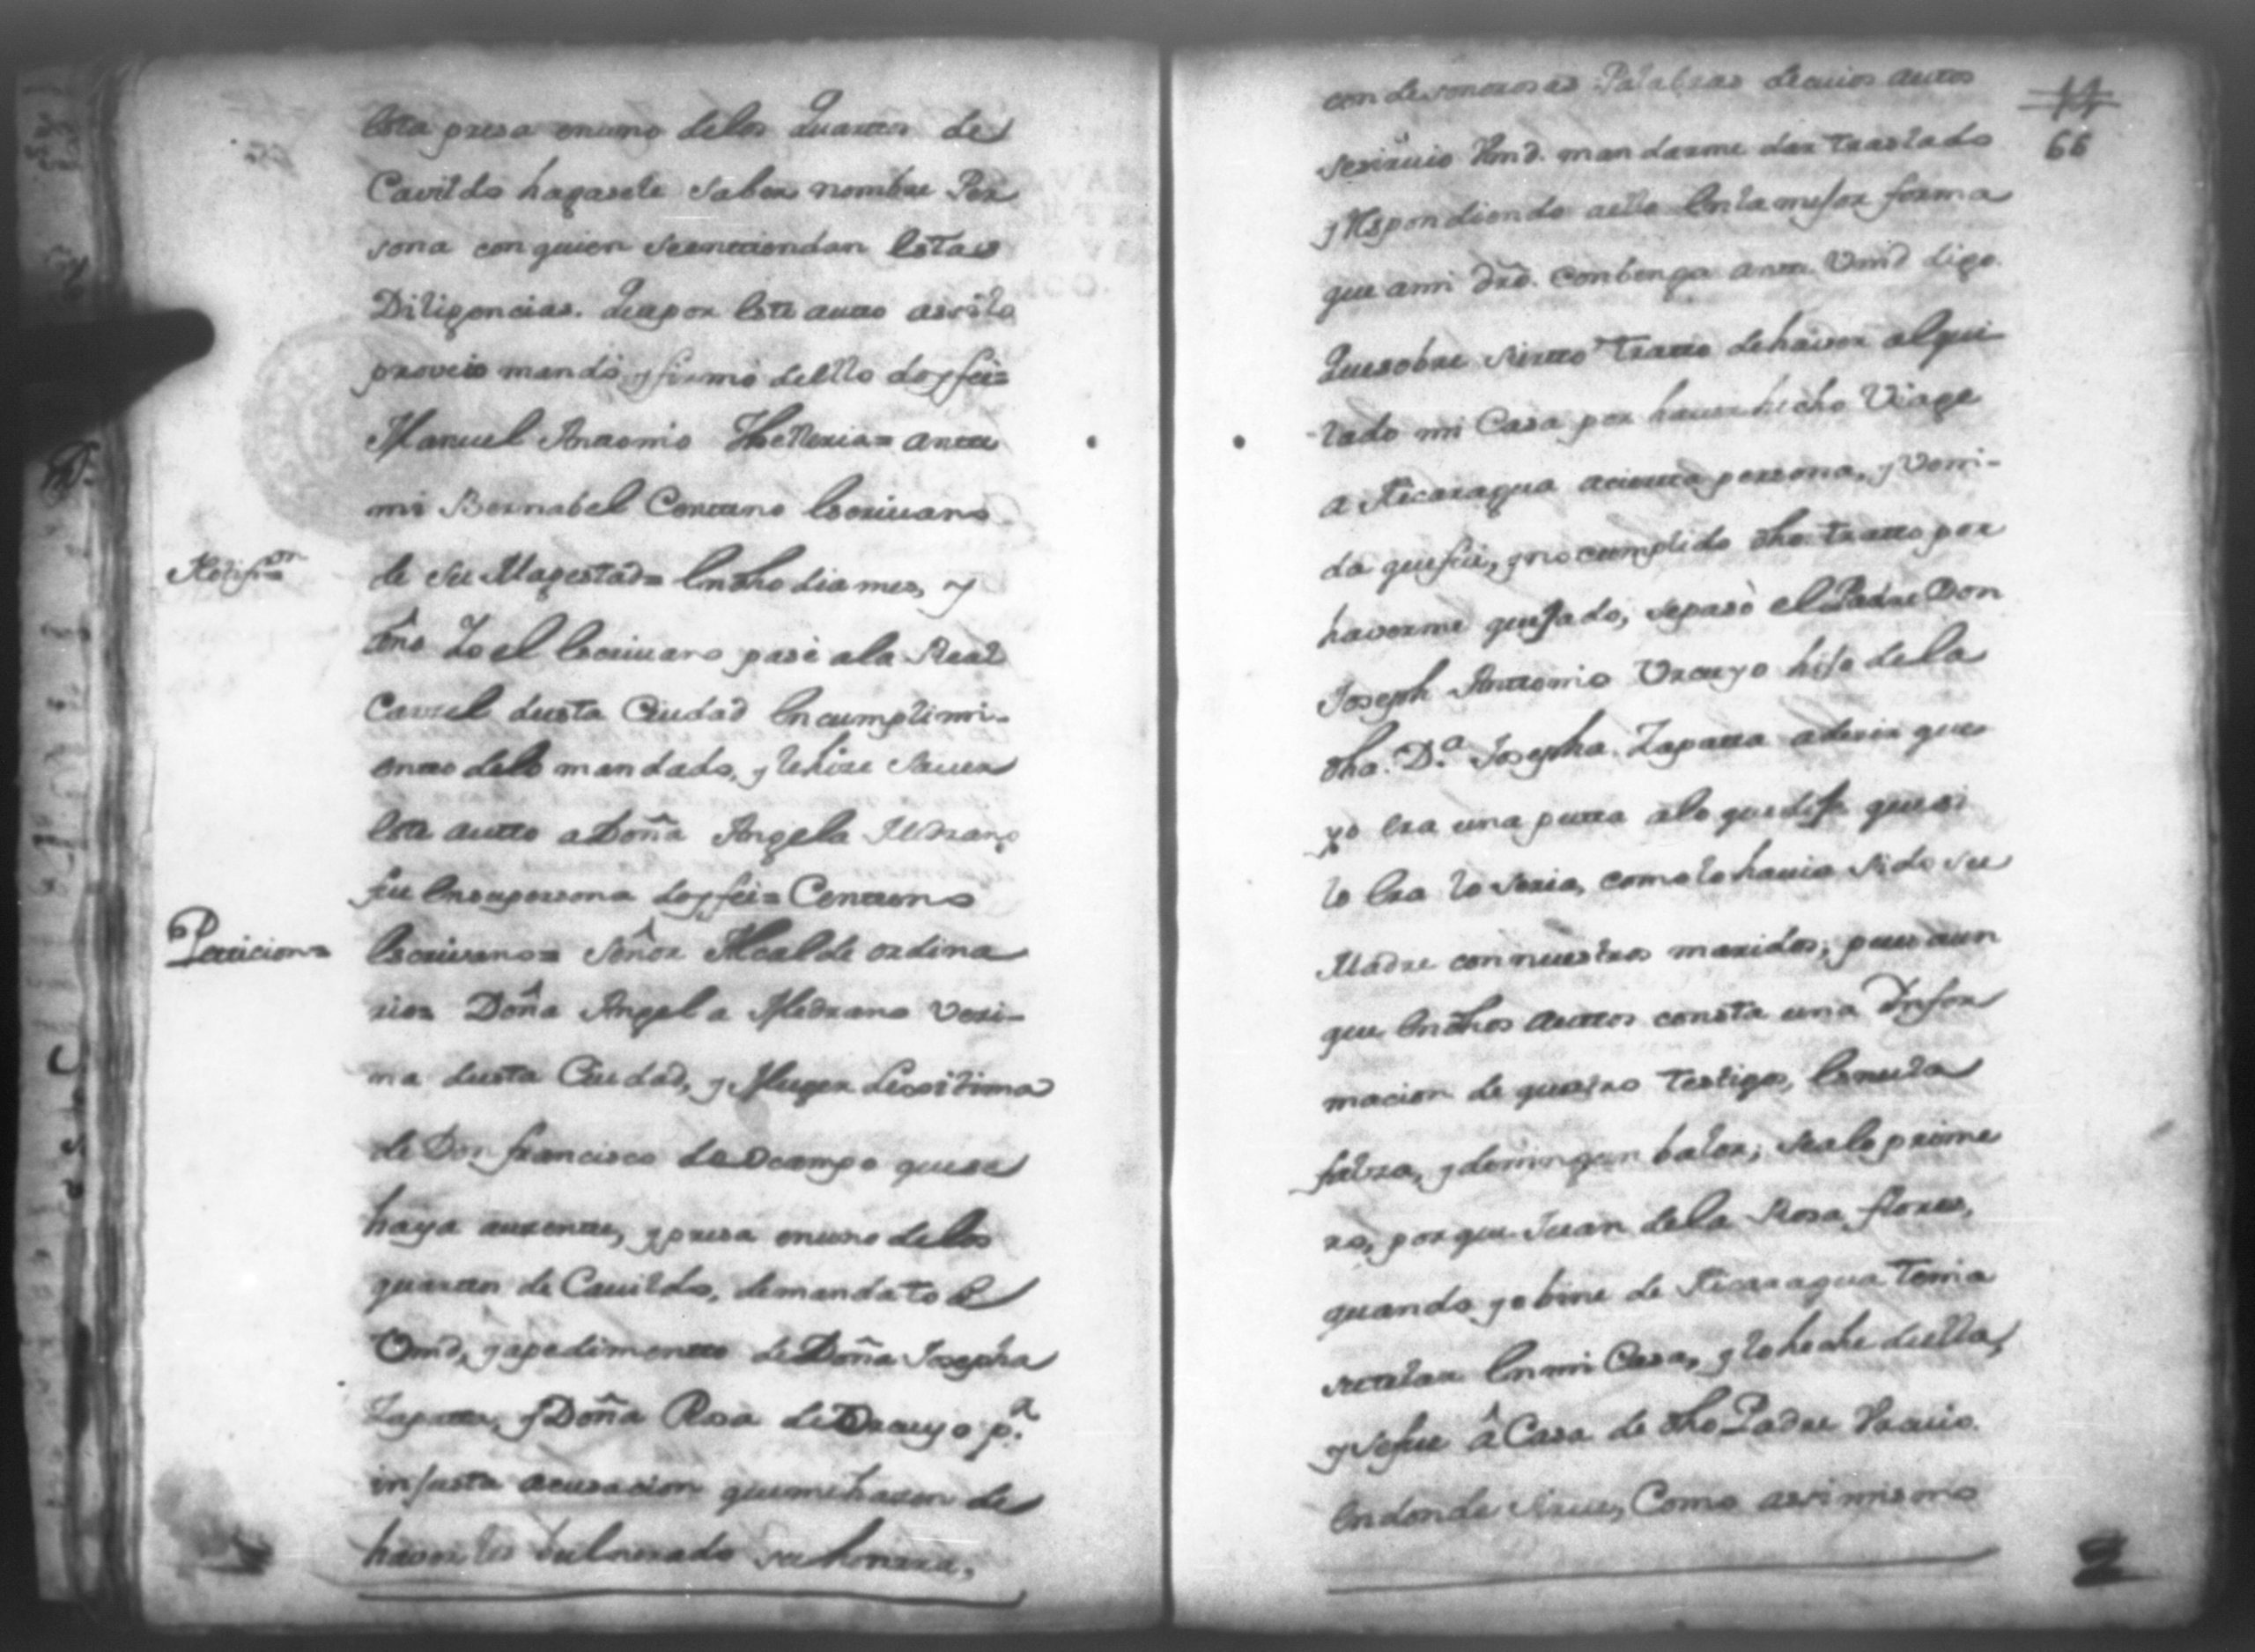 Esta presa enuno delos Quartos de
Cavildo hagasele saber nombre Per
sona con quien seentiendan Estas
Diligencias. Quepor Este autto assilo
proveió mandó, y firmó deello doyfeé=
Manuel Antonio = antte
mi Bernabel Centeno Escriuano
Notifi.on
de Su Magestad= Endho dia mes, y
año Yo el Escriuano pasé ala Real
Carzel desta Ciudad Encumplimi-
ento delo mandado, y lehize Sauer
Este autto a Doña Angela Medrano
fue Ensupersona doyfeé= Centeno
Petticion=
Escriuano= Señor Alcalde ordina
rio= Doña Angela Medrano Vezi-
na desta Ciudad, y Muger Lexitima
de Don francisco de Ocampo quese
haya auzente, y presa enuno delos
quartos de Cauildo, demandato de
Vmd, y apedimento de Doña Josepha
Zapatta, y Doña Rosa de Vrcuyo p.r
injusta acusacion quemehazen de
haverles vulnerado su honrra,
con desonrosas Palabras decuios auttos
sesiruió Vmd. mandarme dar traslado
y Respondiendo aello Enlamejor forma
que ami dro. Conbenga antte Vmd digo
Quesobre sierto tratto dehaver alqui-
lado mi Casa por hauer hecho Viage
a Nicaragua acierta persona, y Veni-
da quefui, y no cumplido dho. tratto por
haverme quejado, sepasó el Padre Don
Joseph Antonio Vrcuyo hijo dela
dha. D.ª Josepha Zapatta adezir que
yo Era una putta alo quedije quesi
lo Era lo seria, como lo hauia sido su
Madre connuestros maridos; pues aun
que Endhos Auttos consta una Infor
macion de quatro testigos, Esnula
falza, y deningun balor; sealo prime
ro, porque Juan dela Rosa flores,
quando yo bine de Nicaragua tenia
Enmi Casa, y lo heche della,
y sefue â Casa de dho Padre Vrcuio
Endonde sirue, Como assimismo
14
66
2